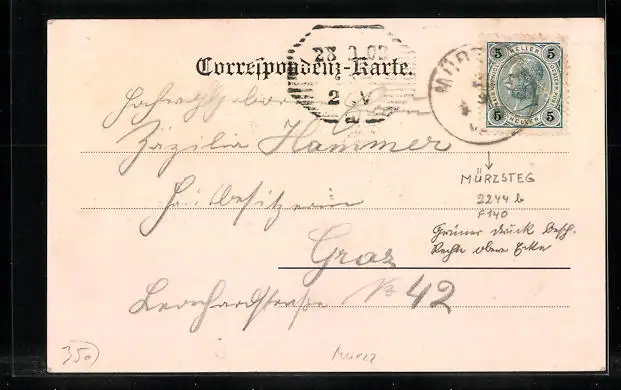 Correspondenz-Karte.
28 0 02
2 V
a
MÜRZ
5 HELLER 5
5 HELLER 5
Hochwohlgeboren Frau
Zäzilia Hammer
Hausbesitzerin
Graz
Leonhardstraße No 42
MÜRZSTEG
2244 b
F140
Grüner druck besch.
Rechte obere Ecke
350
Mürzz